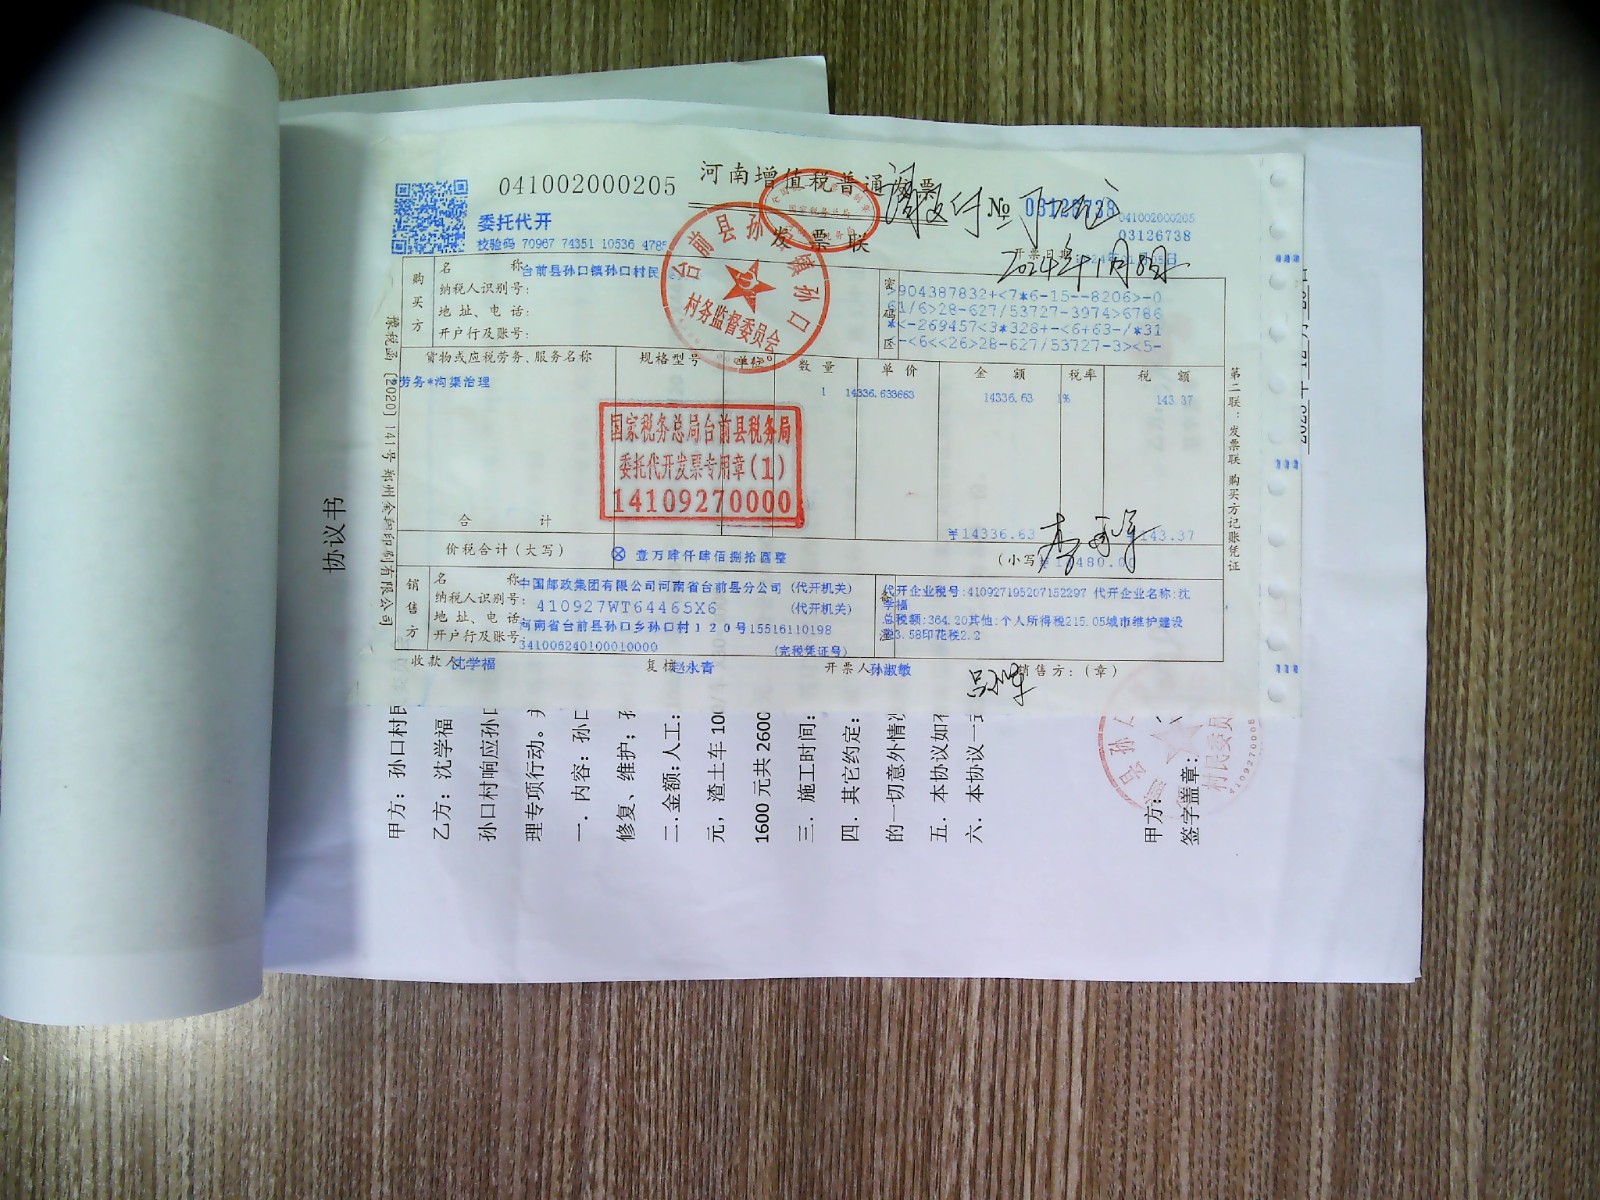 041002000205
河南增值税普通发票
№ 03126738
041002000205
03126738
委托代开
发票联
校验码 70967 74351 10536 4785
2024年1月8日
购买方
名称:台前县孙口镇孙口村民
纳税人识别号:
地址、电话:
开户行及账号:
密码区
>904387832+<7*6-15--8206>-0
61/6>28-627/53727-3974>6786
*<-269457<3*328+-<6+63-/*31
-<6<<26>28-627/53727-3><5-
货物或应税劳务、服务名称 规格型号 单位 数量 单价 金额 税率 税额
劳务*沟渠治理 1 14336.633663 14336.63 1% 143.37
合计 ¥14336.63 ¥143.37
价税合计(大写) ⊗ 壹万肆仟肆佰捌拾圆整 (小写)¥14480.00
销售方
名称:中国邮政集团有限公司河南省台前县分公司 (代开机关)
纳税人识别号:410927WT64465X6 (代开机关)
地址、电话:河南省台前县孙口乡孙口村120号15516110198
开户行及账号:341006240100010000 (完税凭证号)
代开企业税号:410927195207152297 代开企业名称:沈
学福
总税额:364.20其他:个人所得税215.05城市维护建设
税3.58印花税2.2
收款人:沈学福 复核:赵永青 开票人:孙淑敏 销售方:(章)
豫税函〔2020〕141号
第二联:发票联 购买方记账凭证
台前县孙口镇孙口
村务监督委员会
国家税务总局台前县税务局
委托代开发票专用章(1)
14109270000
协议书
甲方:孙口村民
乙方:沈学福
孙口村响应孙口
理专项行动。
一.内容:孙口
修复、维护;
二.金额:人工:
元,渣土车100
1600元共2600
三.施工时间:
四.其它约定:
的一切意外情况
五.本协议如有
六.本协议一式
甲方:
签字盖章:
村民委员